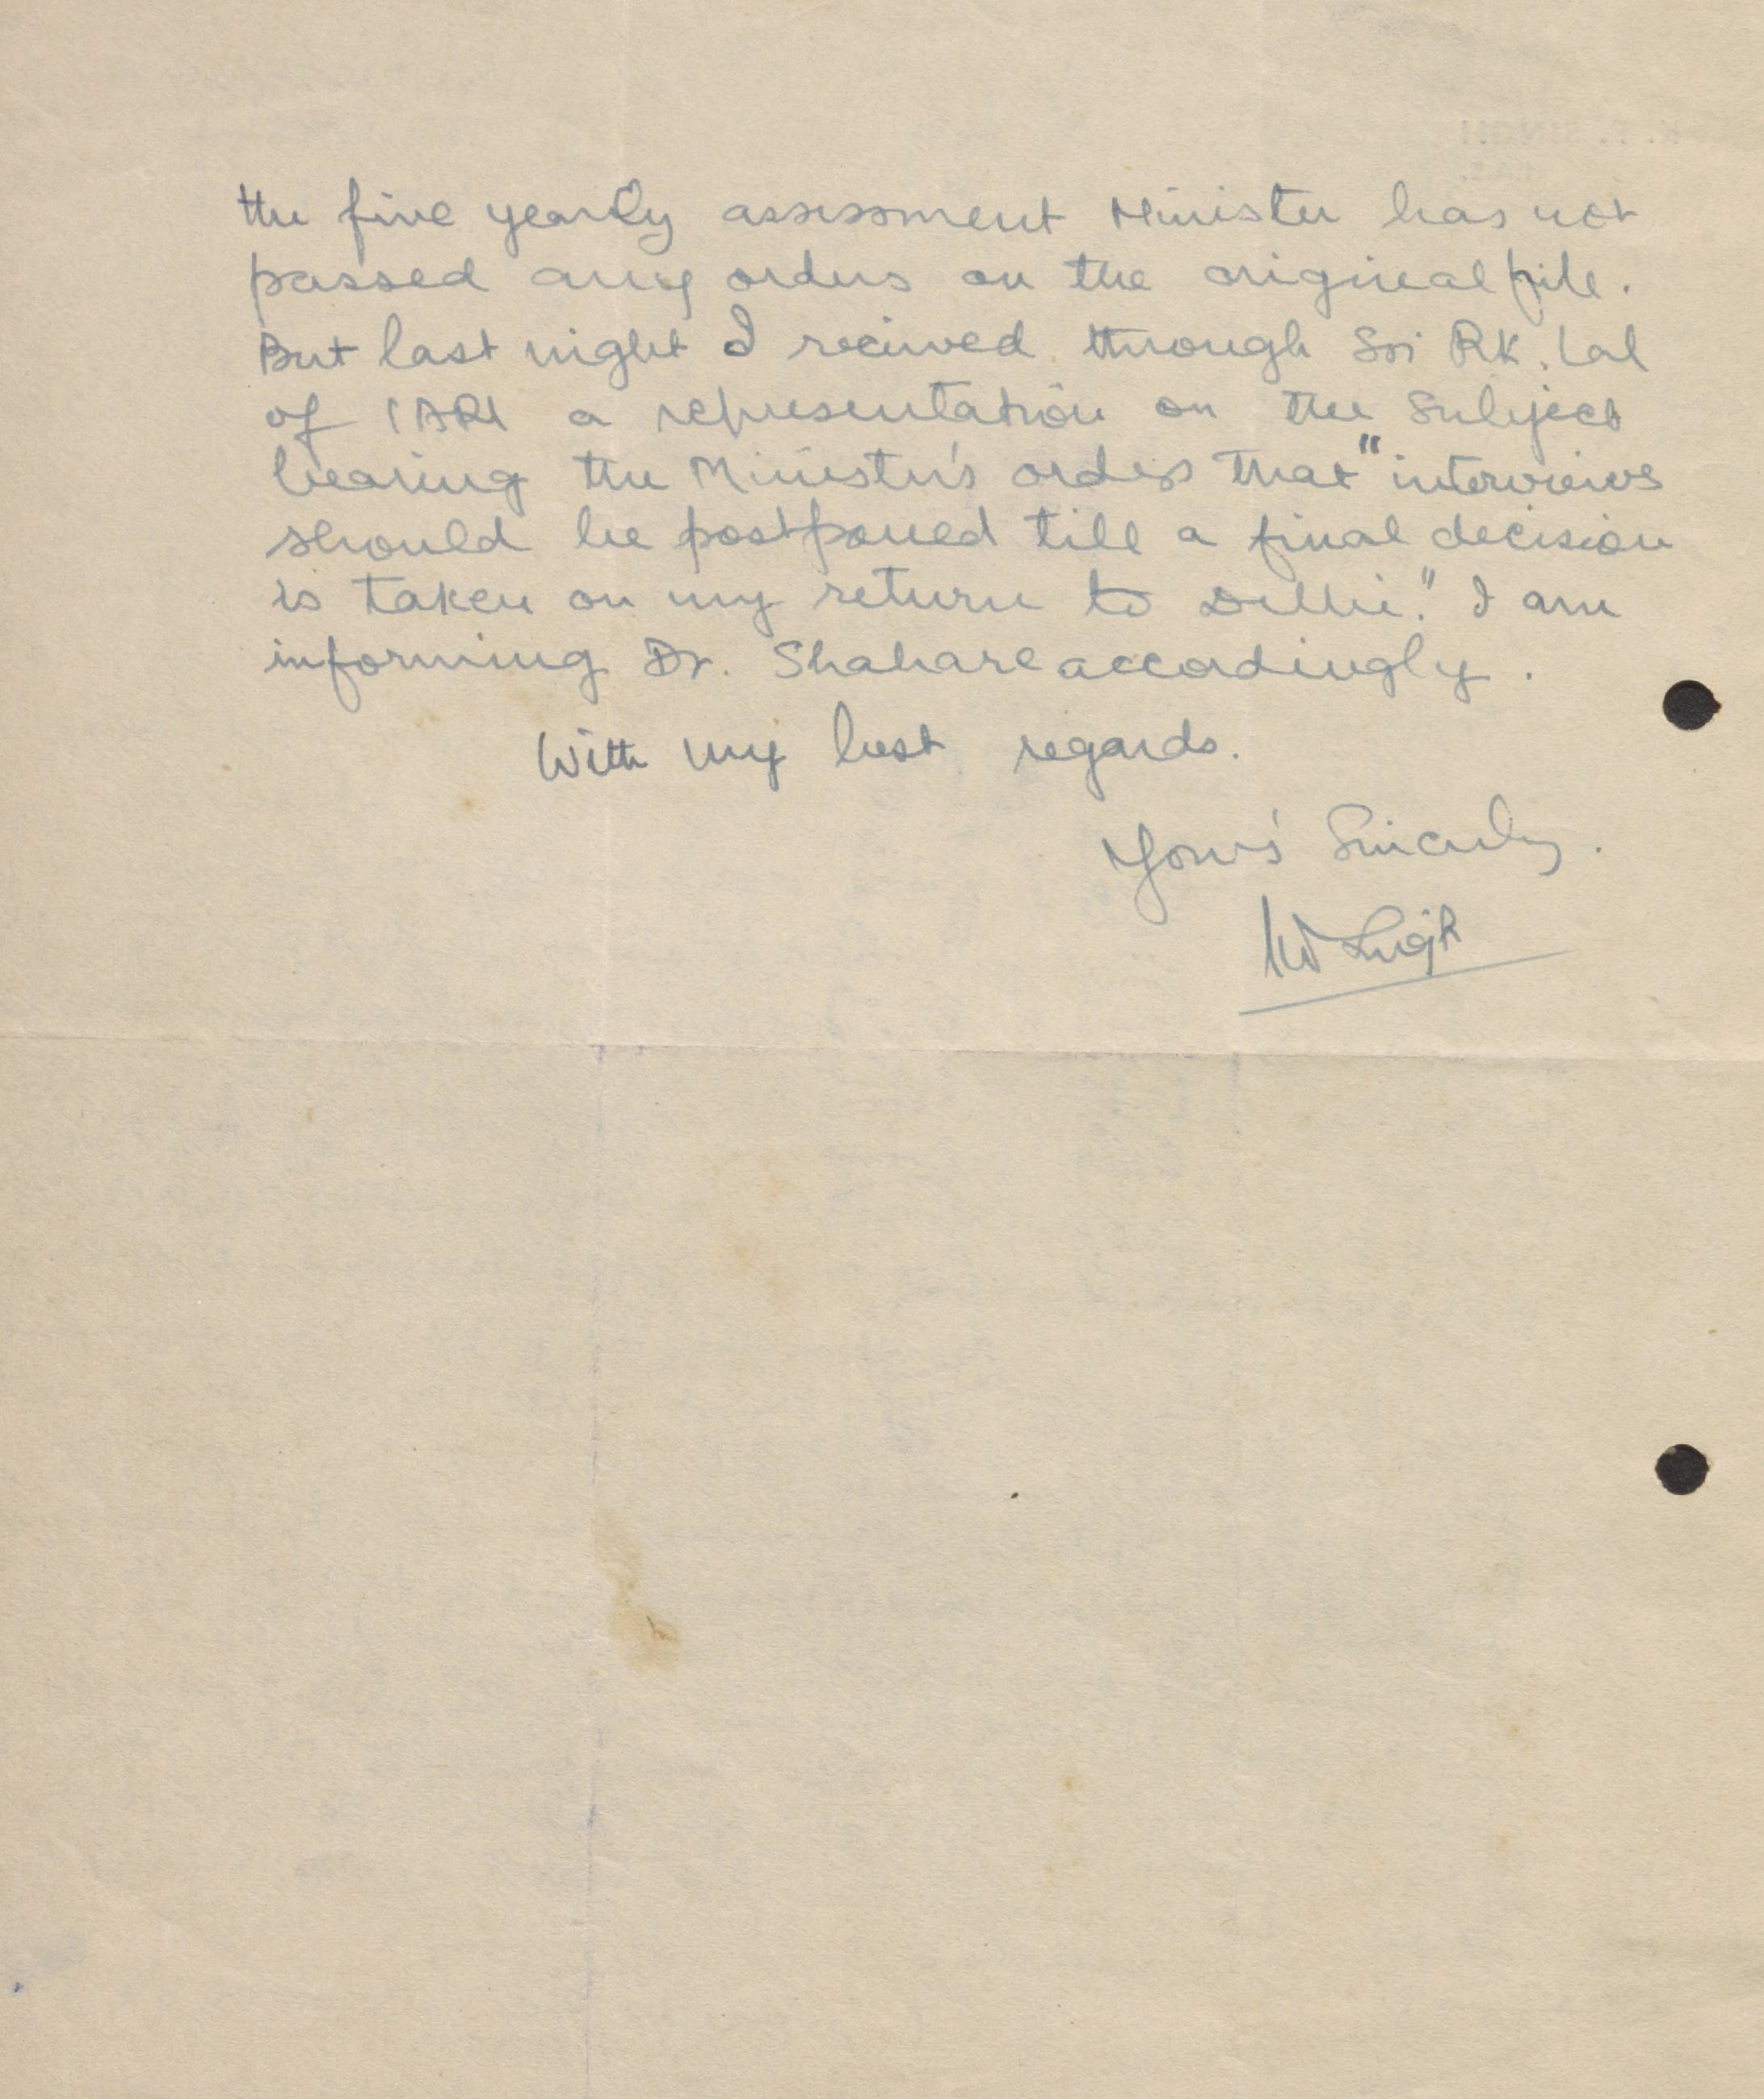 the five yearly assessment Minister has not
passed any orders on the original file.
But last night I recieved through Sri R.K. Lal
of IARI a representation on the subject
bearing the Minister's orders that "interviews
should be postponed till a final decision
is taken on my return to Delhi." I am
informing Dr. Shahare accordingly.
With my best regards.
Your's Sincerely.
Singh